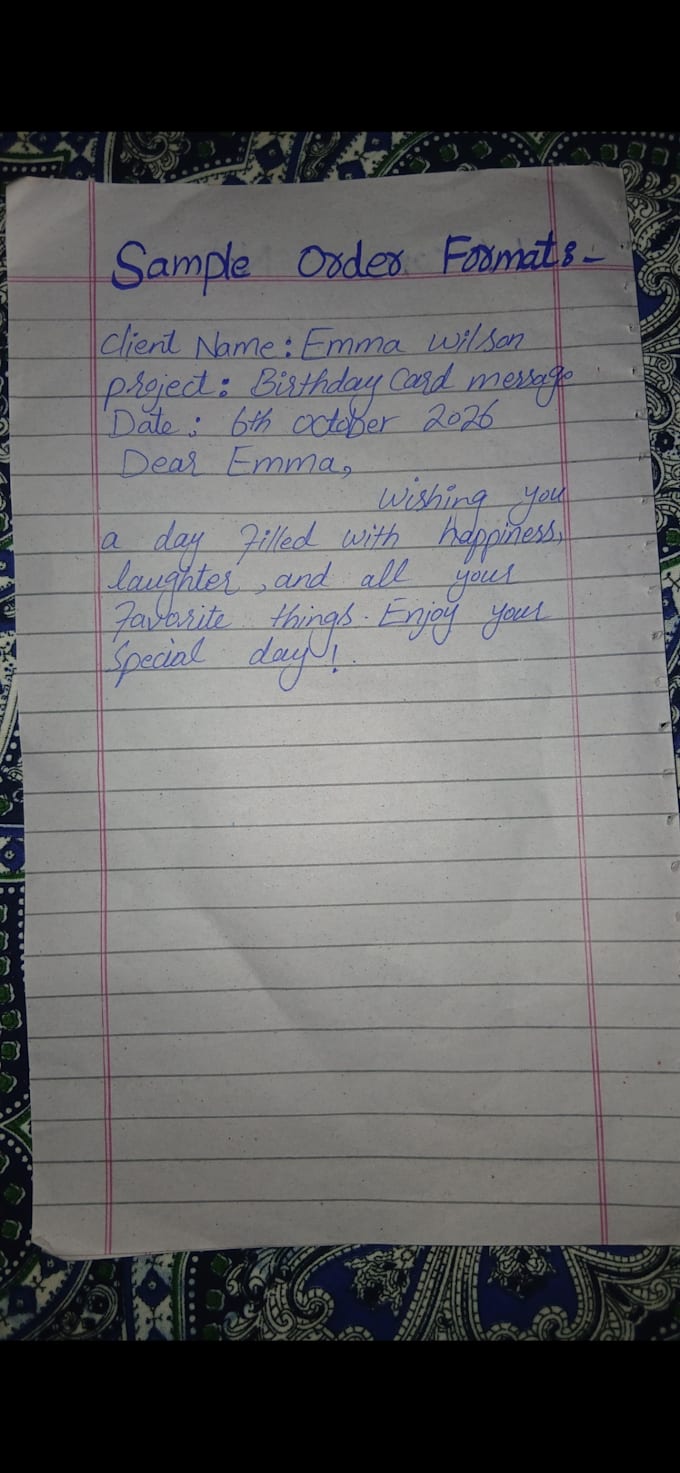 Sample Order Formats -
Client Name: Emma Wilson
project: Birthday Card message
Date: 6th october 2026
Dear Emma,
Wishing you
a day filled with happiness,
laughter, and all your
Favorite things. Enjoy your
Special day!